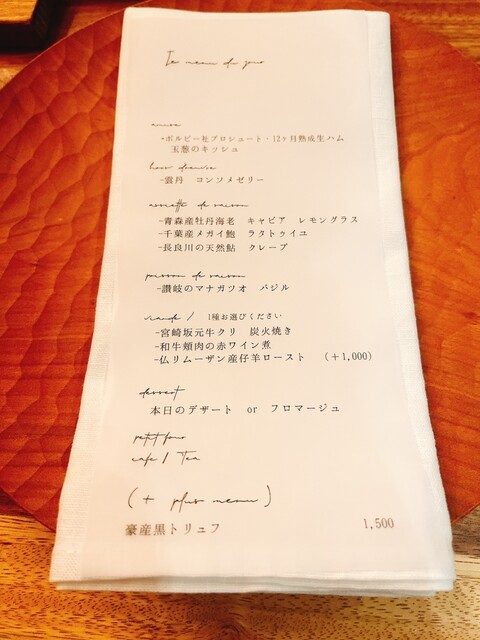 Le menu du jour
amuse
-ボルピー社プロシュート・12ヶ月熟成生ハム
玉葱のキッシュ
hors d'œuvre
-雲丹 コンソメゼリー
assiette de saison
-青森産牡丹海老 キャビア レモングラス
-千葉産メガイ鮑 ラタトゥイユ
-長良川の天然鮎 クレープ
poisson de saison
-讃岐のマナガツオ バジル
viande / 1種お選びください
-宮崎坂元牛クリ 炭火焼き
-和牛頬肉の赤ワイン煮
-仏リムーザン産仔羊ロースト (+1,000)
dessert
本日のデザート or フロマージュ
petit four
cafe / Tea
(+ plus menu)
豪産黒トリュフ 1,500